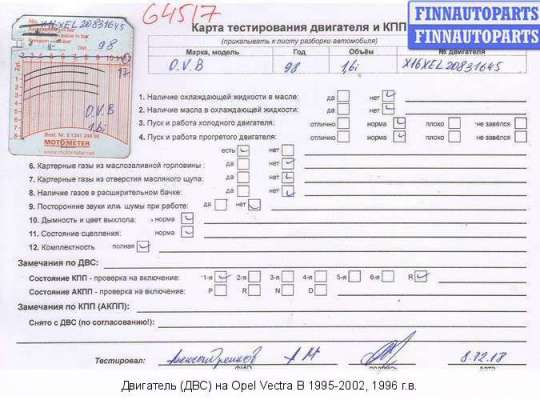 64517
FINNAUTOPARTS
FINNAUTOPARTS
X16XEL20831645
98
17
O.V.B
1,6i
MOTOMETER
Карта тестирования двигателя и КПП
(прикалывать к листу разборки автомобиля)
Марка, модель Год Объём № двигателя
O.V.B 98 1,6i X16XEL20831645
1. Наличие охлаждающей жидкости в масле: да нет
2. Наличие масла в охлаждающей жидкости: да нет
3. Пуск и работа холодного двигателя: отлично норма плохо не завёлся
4. Пуск и работа прогретого двигателя: отлично норма плохо не завёлся
есть нет
6. Картерные газы из маслозаливной горловины: да нет
7. Картерные газы из отверстия масляного щупа: да нет
8. Наличие газов в расширительном бачке: да нет
9. Посторонние звуки или шумы при работе: да нет
10. Дымность и цвет выхлопа: норма
11. Состояние сцепления: норма
12. Комплектность полная
Замечания по ДВС:
Состояние КПП - проверка на включение: 1-я 2-я 3-я 4-я 5-я 6-я R
Состояние АКПП - проверка на включение: P R N D
Замечания по КПП (АКПП):
Снято с ДВС (по согласованию!):
Тестировал: 8.12.18
Двигатель (ДВС) на Opel Vectra B 1995-2002, 1996 г.в.